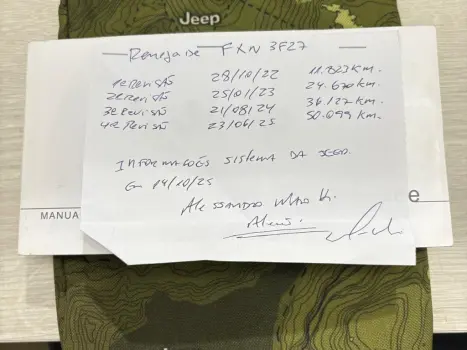 Jeep
Renegade FXN 3F27
1ª Revisão 28/10/22 11.823 Km.
2ª Revisão 25/01/23 24.670 Km.
3ª Revisão 21/08/24 36.127 Km.
4ª Revisão 23/06/25 50.099 Km.
Informações sistema da Jeep.
Em 14/10/25
Alessandro
MANUA
e